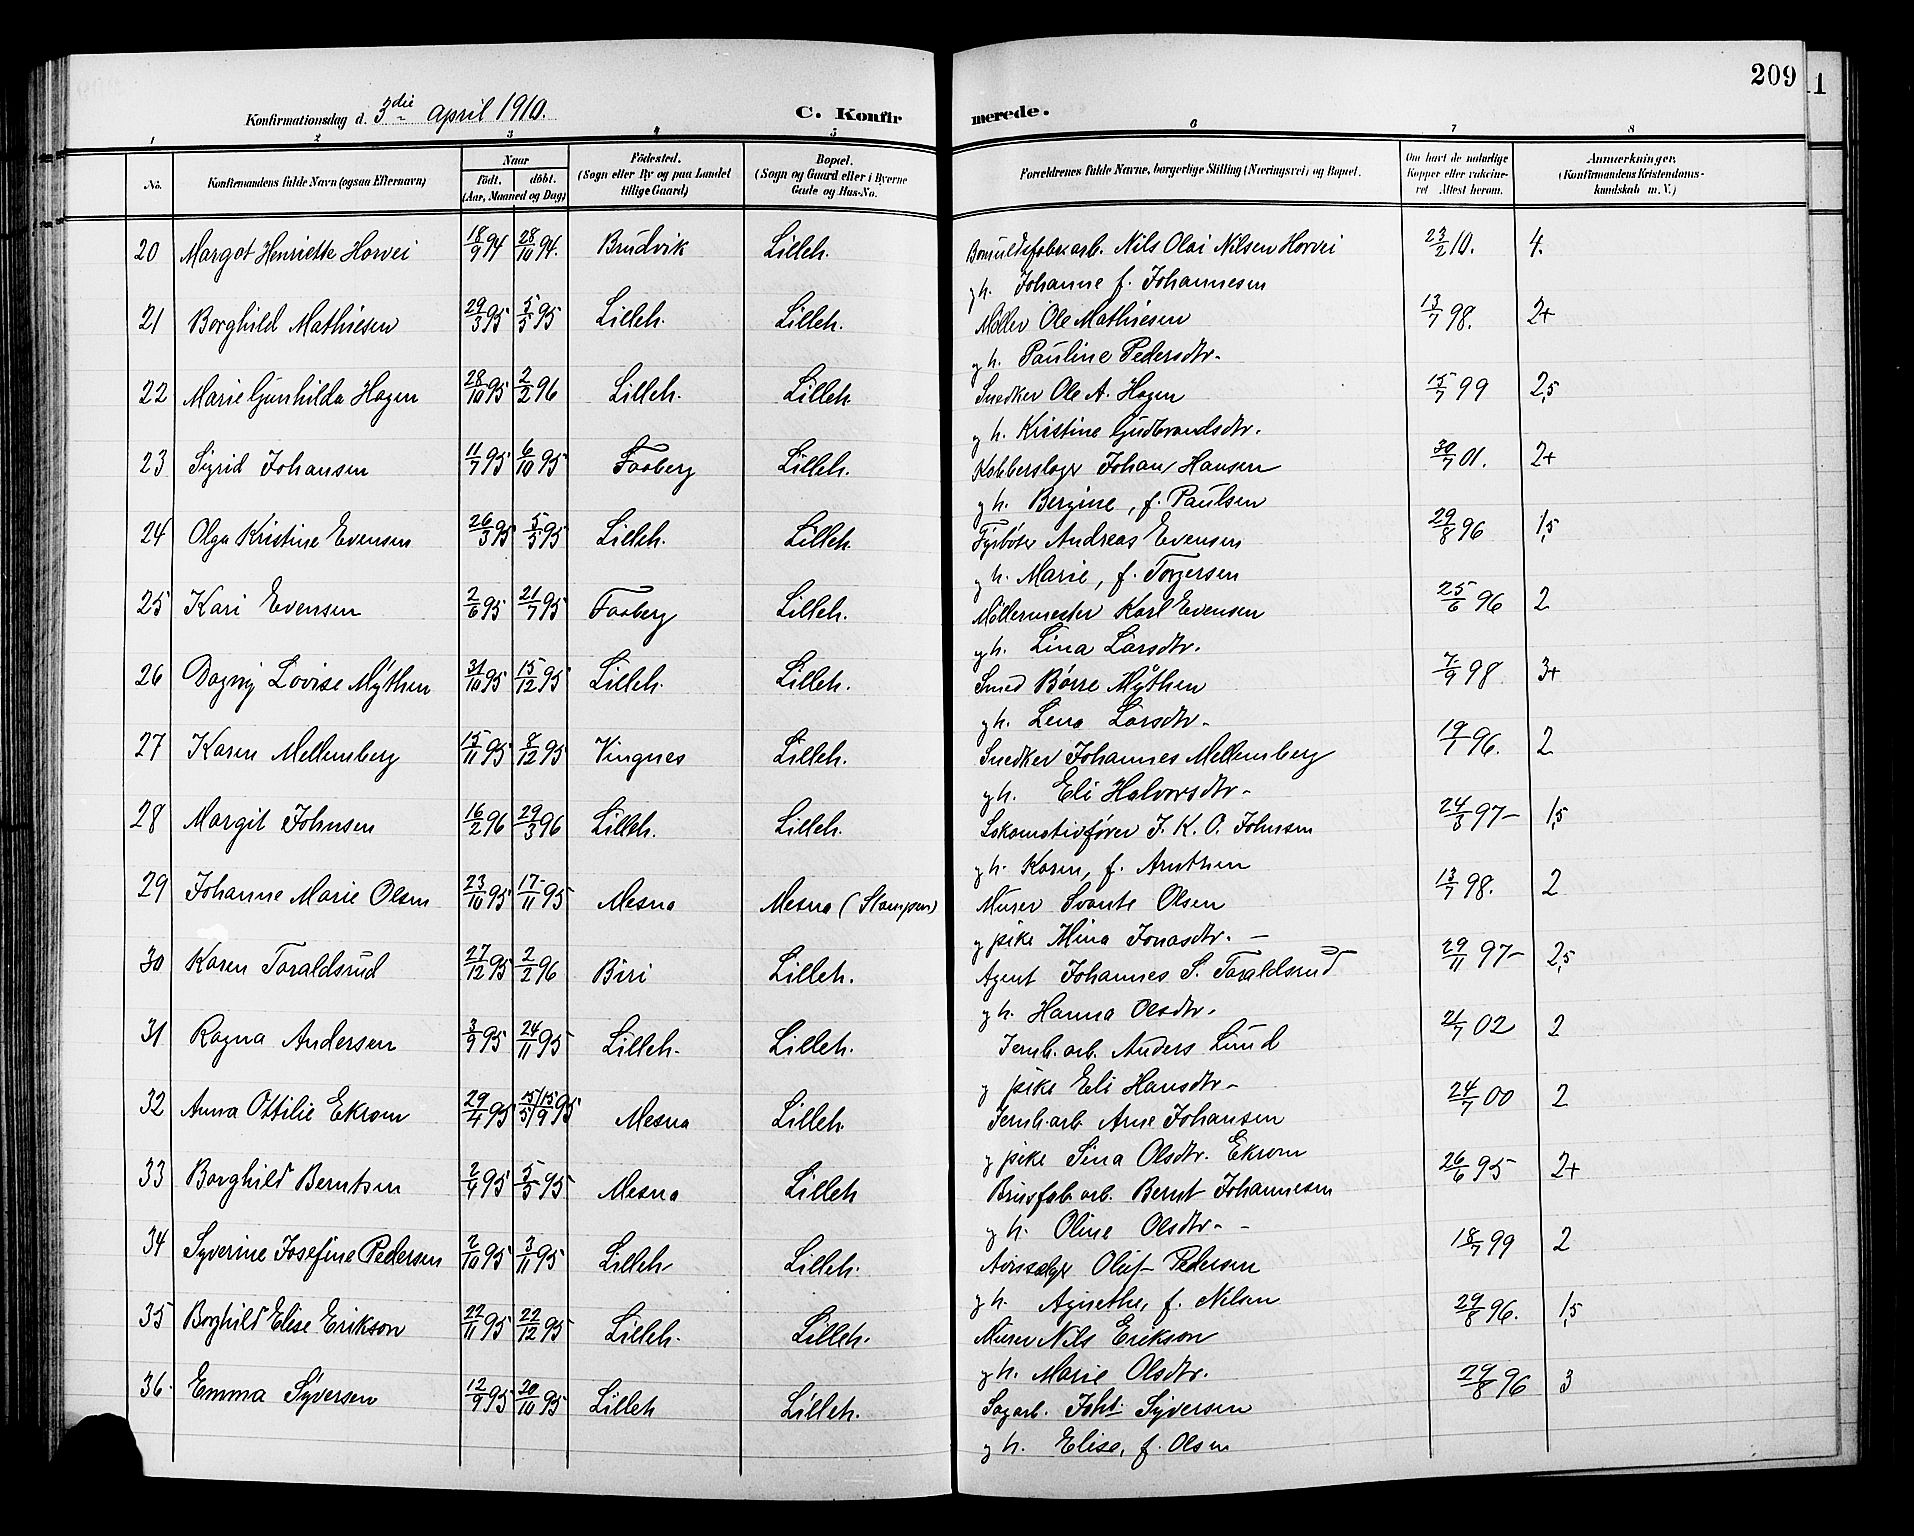 209
Konfirmationsdag d. 3die april 1910. C. Konfir merede.
1 2 3 4 5 6 7 8
No. Konfirmandens fulde Navn (ogsaa Efternavn) Naar Födt. döbt. (Aar, Maaned og Dag) Födested. (Sogn eller By og paa Landet tillige Gaard) Bopæl. (Sogn og Gaard eller i Byerne Gade og Hus-No. Forældrenes fulde Navne, borgerlige Stilling (Næringsvei) og Bopæl. Om havt de naturlige Kopper eller vakcineret. Attest herom. Anmærkninger. (Konfirmandens Kristendomskundskab m. V.)
20 Margot Henriette Horvei 18/9 94 28/10 94. Brudvik Lilleh. Bomuldsfabr. arb. Nils Olai Nilsen Horvei 23/2 10. 4.
g h. Johanne f. Johannesen
21 Borghild Mathiesen 29/3 95 5/5 95 Lilleh. Lilleh. Møller Ole Mathiesen 13/7 98. 2+
g h. Pauline Pedersdtr.
22 Marie Gunhilda Hagen 28/10 95 2/2 96 Lilleh. Lilleh. Snedker Ole A. Hagen 15/7 99 2,5
g h. Kristine Gudbrandsdtr.
23 Sigrid Johansen 11/7 95 6/10 95 Faaberg Lilleh. Kobberslager Johan Hansen 30/7 01. 2+
g h. Bergine, f. Paulsen
24 Olga Kristine Evensen 26/3 95 5/5 95 Lilleh. Lilleh. Fyrbøter Andreas Evensen 29/8 96 1,5
g h. Marie, f. Torgersen
25 Kari Evensen 2/6 95 21/7 95 Faaberg Lilleh. Møllermester Karl Evensen 25/6 96 2
g h. Lina Larsdtr.
26 Dagny Lovise Mythen 31/10 95 15/12 95 Lilleh. Lilleh. Smed Børre Mythen 7/9 98 3+
g h. Lena Larsdtr.
27 Karen Mellemberg 15/11 95 8/12 95 Vingnes Lilleh. Snedker Johannes Mellemberg 19/1 96. 2
g h. Eli Halvorsdtr.
28 Margit Johnsen 16/2 96 29/3 96 Lilleh. Lilleh. Lokomotivfører J. K. O. Johnsen 24/8 97 1,5
g h. Karen, f. Arntsen
29 Johanne Marie Olsen 23/10 95 17/11 95 Mesna Mesna (Stampen) Murer Svante Olsen 13/7 98. 2
g pike Mina Jonasdtr.
30 Karen Taraldsrud 27/12 95 2/2 96 Biri Lilleh. Agent Johannes S. Taraldsrud 29/11 97 2,5
g h. Hanna Olsdtr.
31 Ragna Andersen 3/9 95 24/11 95 Lilleh. Lilleh. Jernb. arb. Anders Lund 21/7 02 2
g pike Eli Hansdtr
32 Anna Ottilie Ekrom 29/4 95 15/5 15/9 95 Mesna Lilleh. Jernb. arb. Arne Johansen 24/7 00 2
g pike Sina Olsdtr. Ekrom
33 Borghild Berntsen 2/4 95 5/5 95 Mesna Lilleh Brusfab. arb. Bernt Johannesen 26/6 95 2+
g h. Oline Olsdtr.
34 Syverine Josefine Pedersen 2/10 95 3/11 95 Lilleh Lilleh. Avissælger Oluf Pedersen 18/7 99 2
g h. Agnethe, f. Nilsen
35 Borghild Elise Erikson 22/11 95 22/12 95 Lilleh. Lilleh. Murer Nils Erikson 29/8 96. 1,5
g h. Marie Olsdtr.
36. Emma Syversen 12/9 95 20/10 95 Lilleh Lilleh. Sagarb. Joh. Syversen 29/8 96 3
g h. Elise, f. Olsen